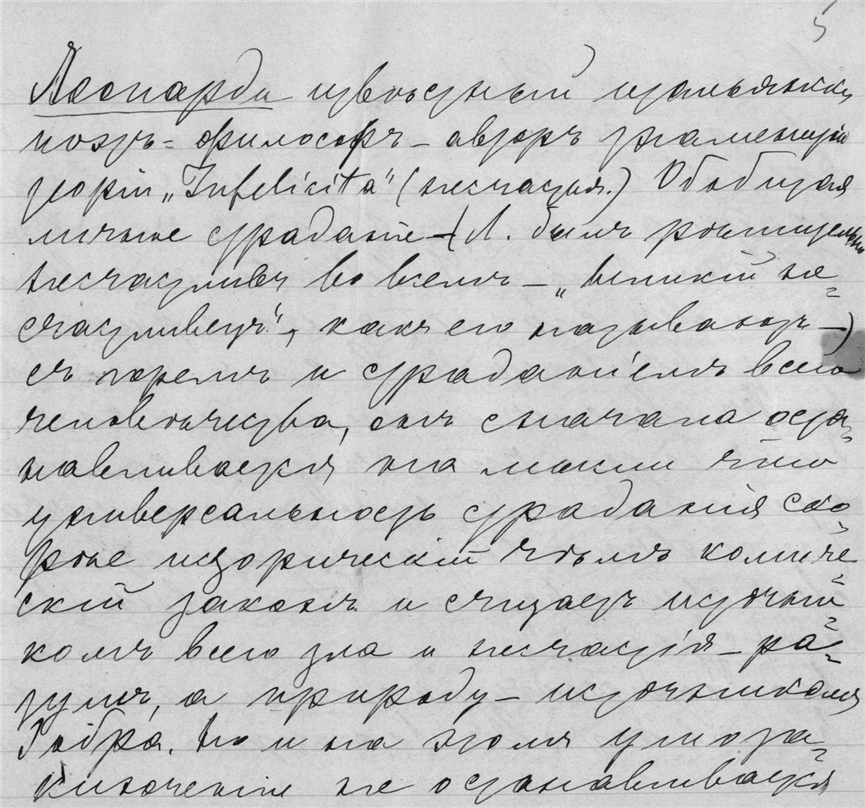 5
Леопарди извѣстный итальянскій
поэтъ-философъ – авторъ знаменитой
теоріи „Infelicita“ (несчастья.) Обобщая
личные страданія – (Л. былъ рѣшительно
несчастливъ во всемъ – „великій не-
счастливецъ“, какъ его называютъ –)
съ горемъ и страданіемъ всего
человѣчества, онъ сначала оста-
навливается на мысли что
универсальность страданія ско-
рѣе историческій чѣмъ
скій законъ и считаетъ источни-
комъ всего зла и несчастія – ра-
зумъ, а природу – источникомъ
добра. Но и на этомъ умоза-
ключеніи не останавливается